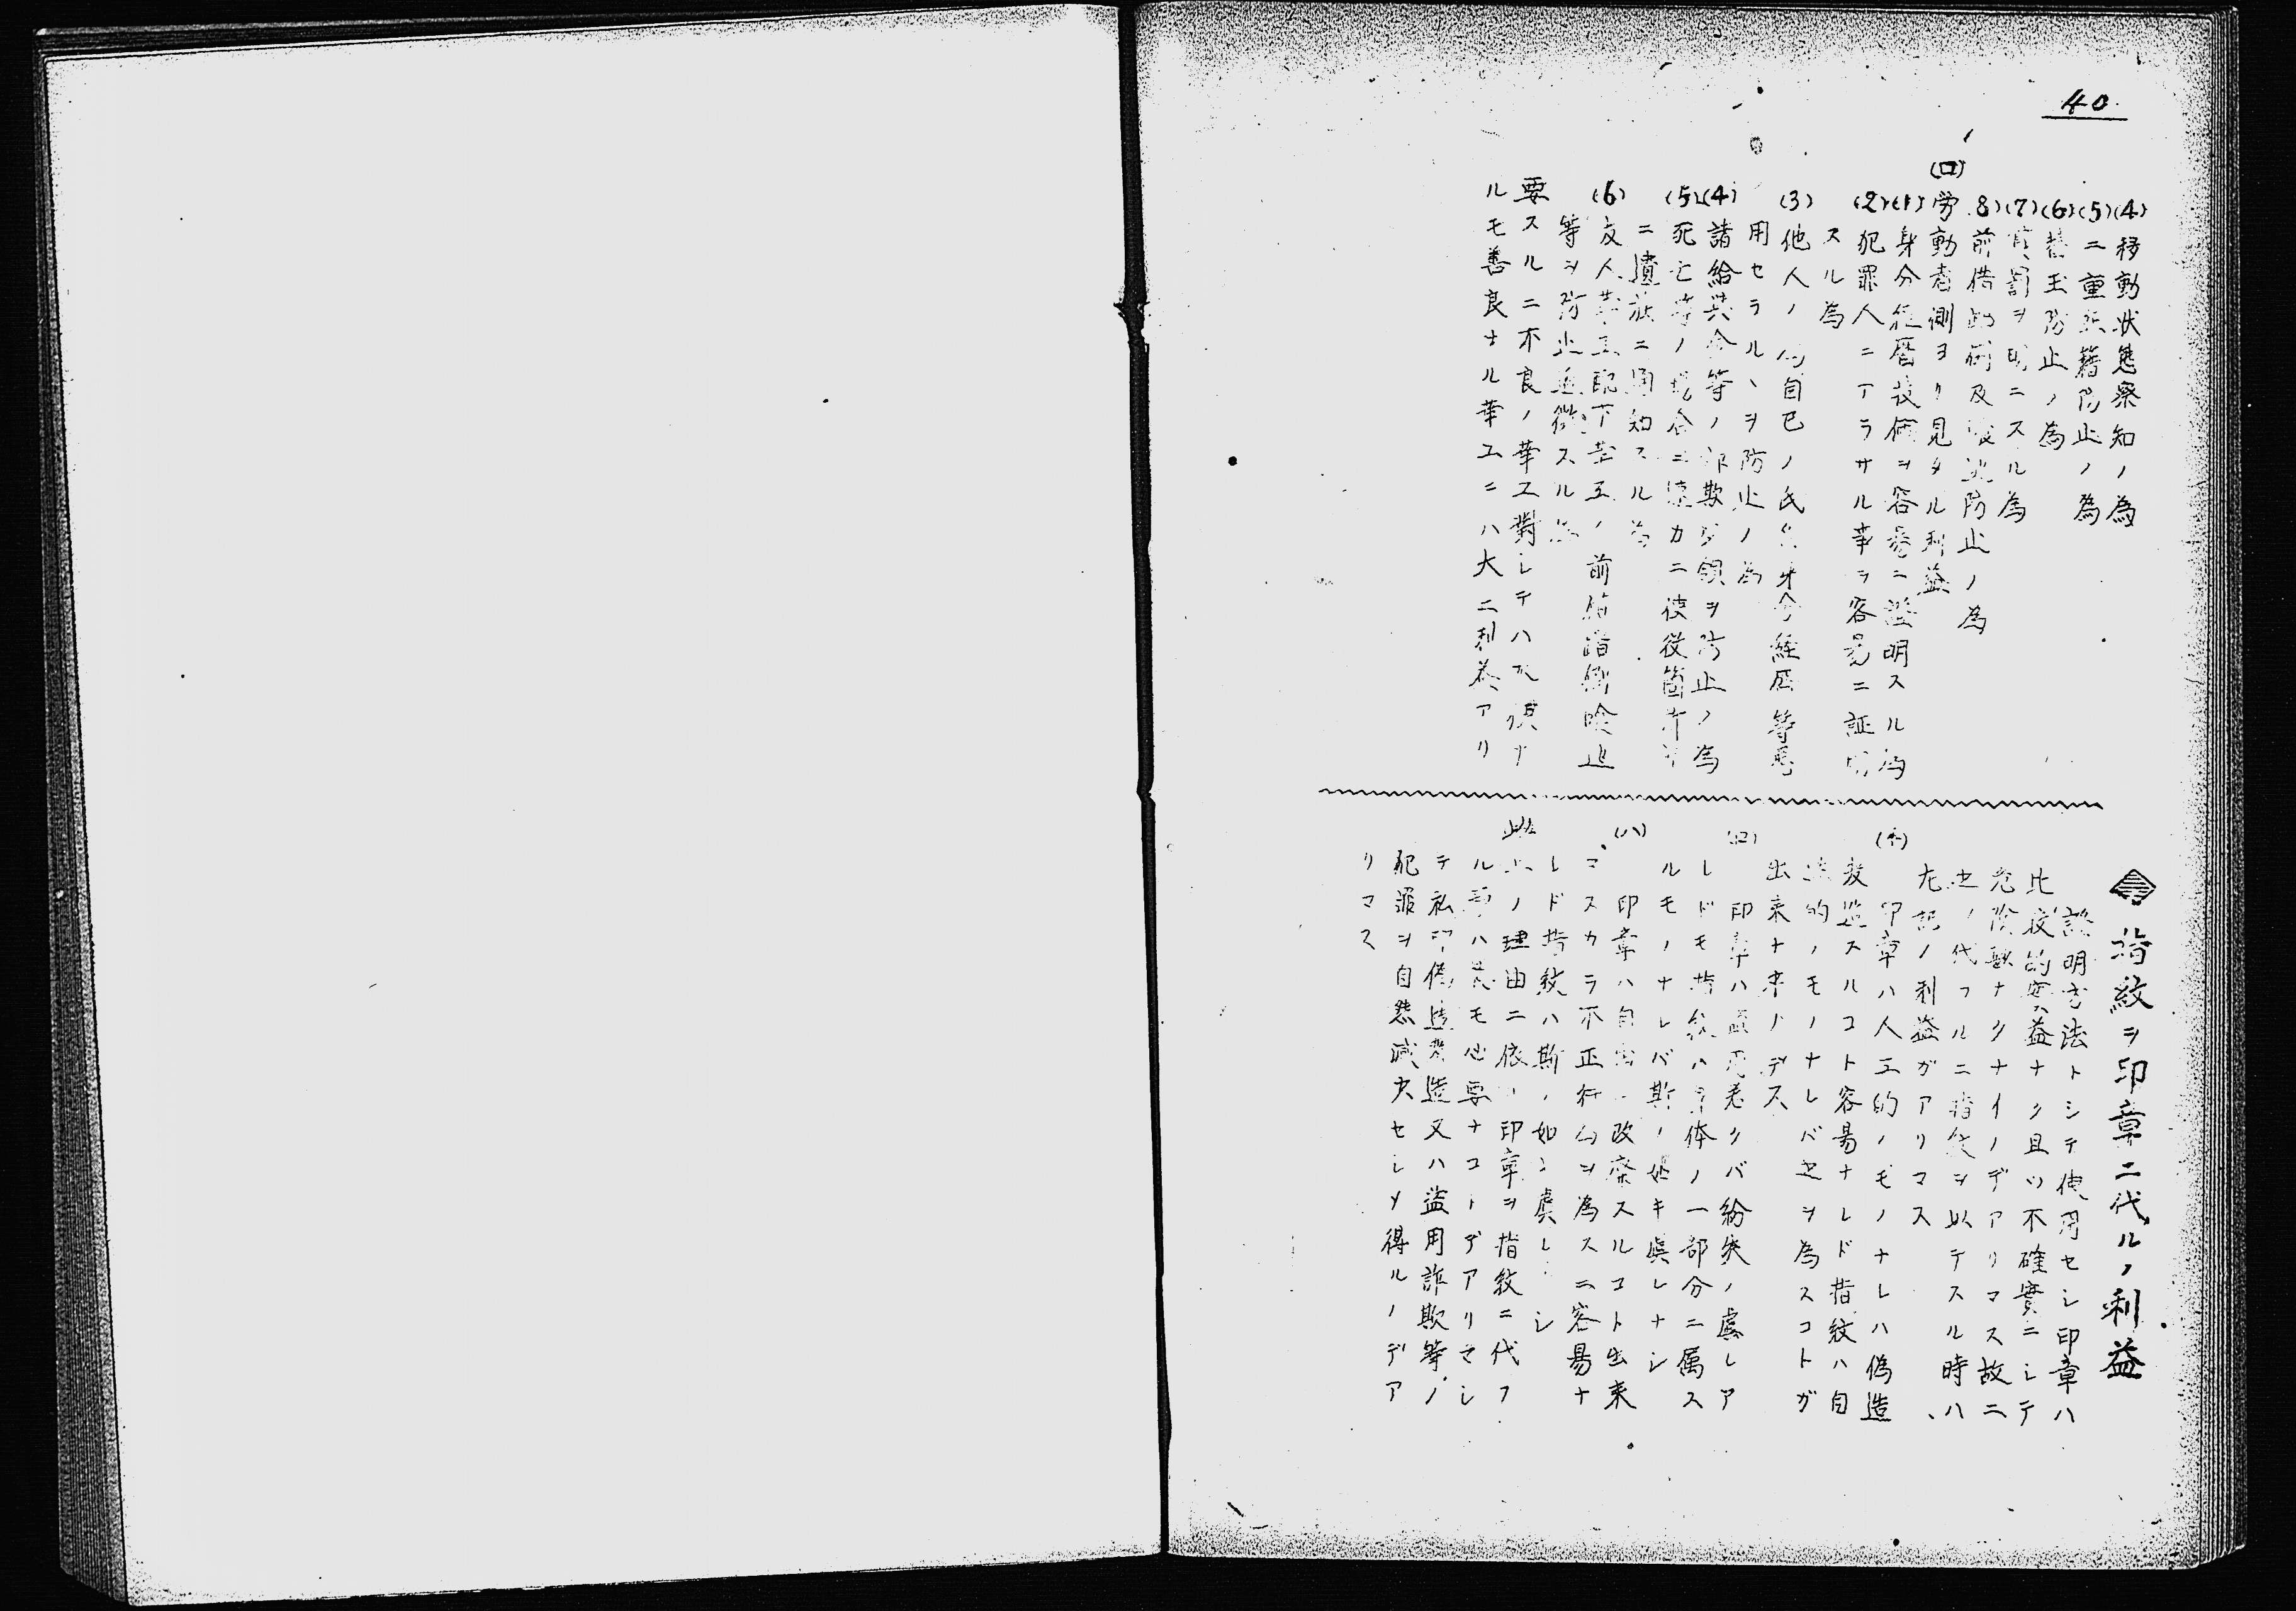 40.
(4) 移動状態察知ノ為
(5) 二重 籍防止ノ為
(6) 替玉防止ノ為
(7) 賞罰ヲ明ニスル為
(8) 前借 及 逃防止ノ為
(ロ) 労動者側ヨリ見タル利益
(1) 身分経歴技倆ヲ容易ニ證明スル為
(2) 犯罪人ニアラサル事ヲ容易ニ証明
スル為
(3) 他人ノ為自己ノ氏名身分経歴等悪
用セラルヽヲ防止ノ為
(4) 諸給与金等ノ詐欺受領ヲ防止ノ為
(5) 死亡等ノ場合ニ速カニ使役箇所
ニ遺族ニ通知スル為
(6) 友人 配下 前 踏倒 逃
等ヲ防止追徴スル為
要スルニ不良ノ華工對シテハ ナ
ルモ善良ナル華工ニハ大ニ利益アリ
指紋ヲ印章ニ代ルノ利益
證明方法トシテ使用セシ印章ハ
比較的実益ナク且ツ不確實ニシテ
危険 ナクナイノデアリマス故ニ
之ノ代フルニ指紋ヲ以テスル時ハ
左記ノ利益ガアリマス、
(イ) 印章ハ人工的ノモノナレハ偽造
変造スルコト容易ナレド指紋ハ自
然的ノモノナレバ之ヲ為スコトガ
出来ナ デス
(ロ) 印章ハ クバ紛失ノ虞レア
レドモ指紋ハ身体ノ一部分ニ属ス
ルモノナレバ斯ノ如キ虞レナシ
(ハ) 印章ハ自由ニ改廃スルコト出来
マスカラ不正行為ヲ為スニ容易ナ
レド指紋ハ斯ノ如 虞レ シ
此 ノ理由ニ依リ印章ヲ指紋ニ代フ
ル事ハ最モ必要ナコトデアリマシ
テ私印偽造変造又ハ盗用詐欺等ノ
犯罪ヲ自然減少セシメ得ルノデア
リマス